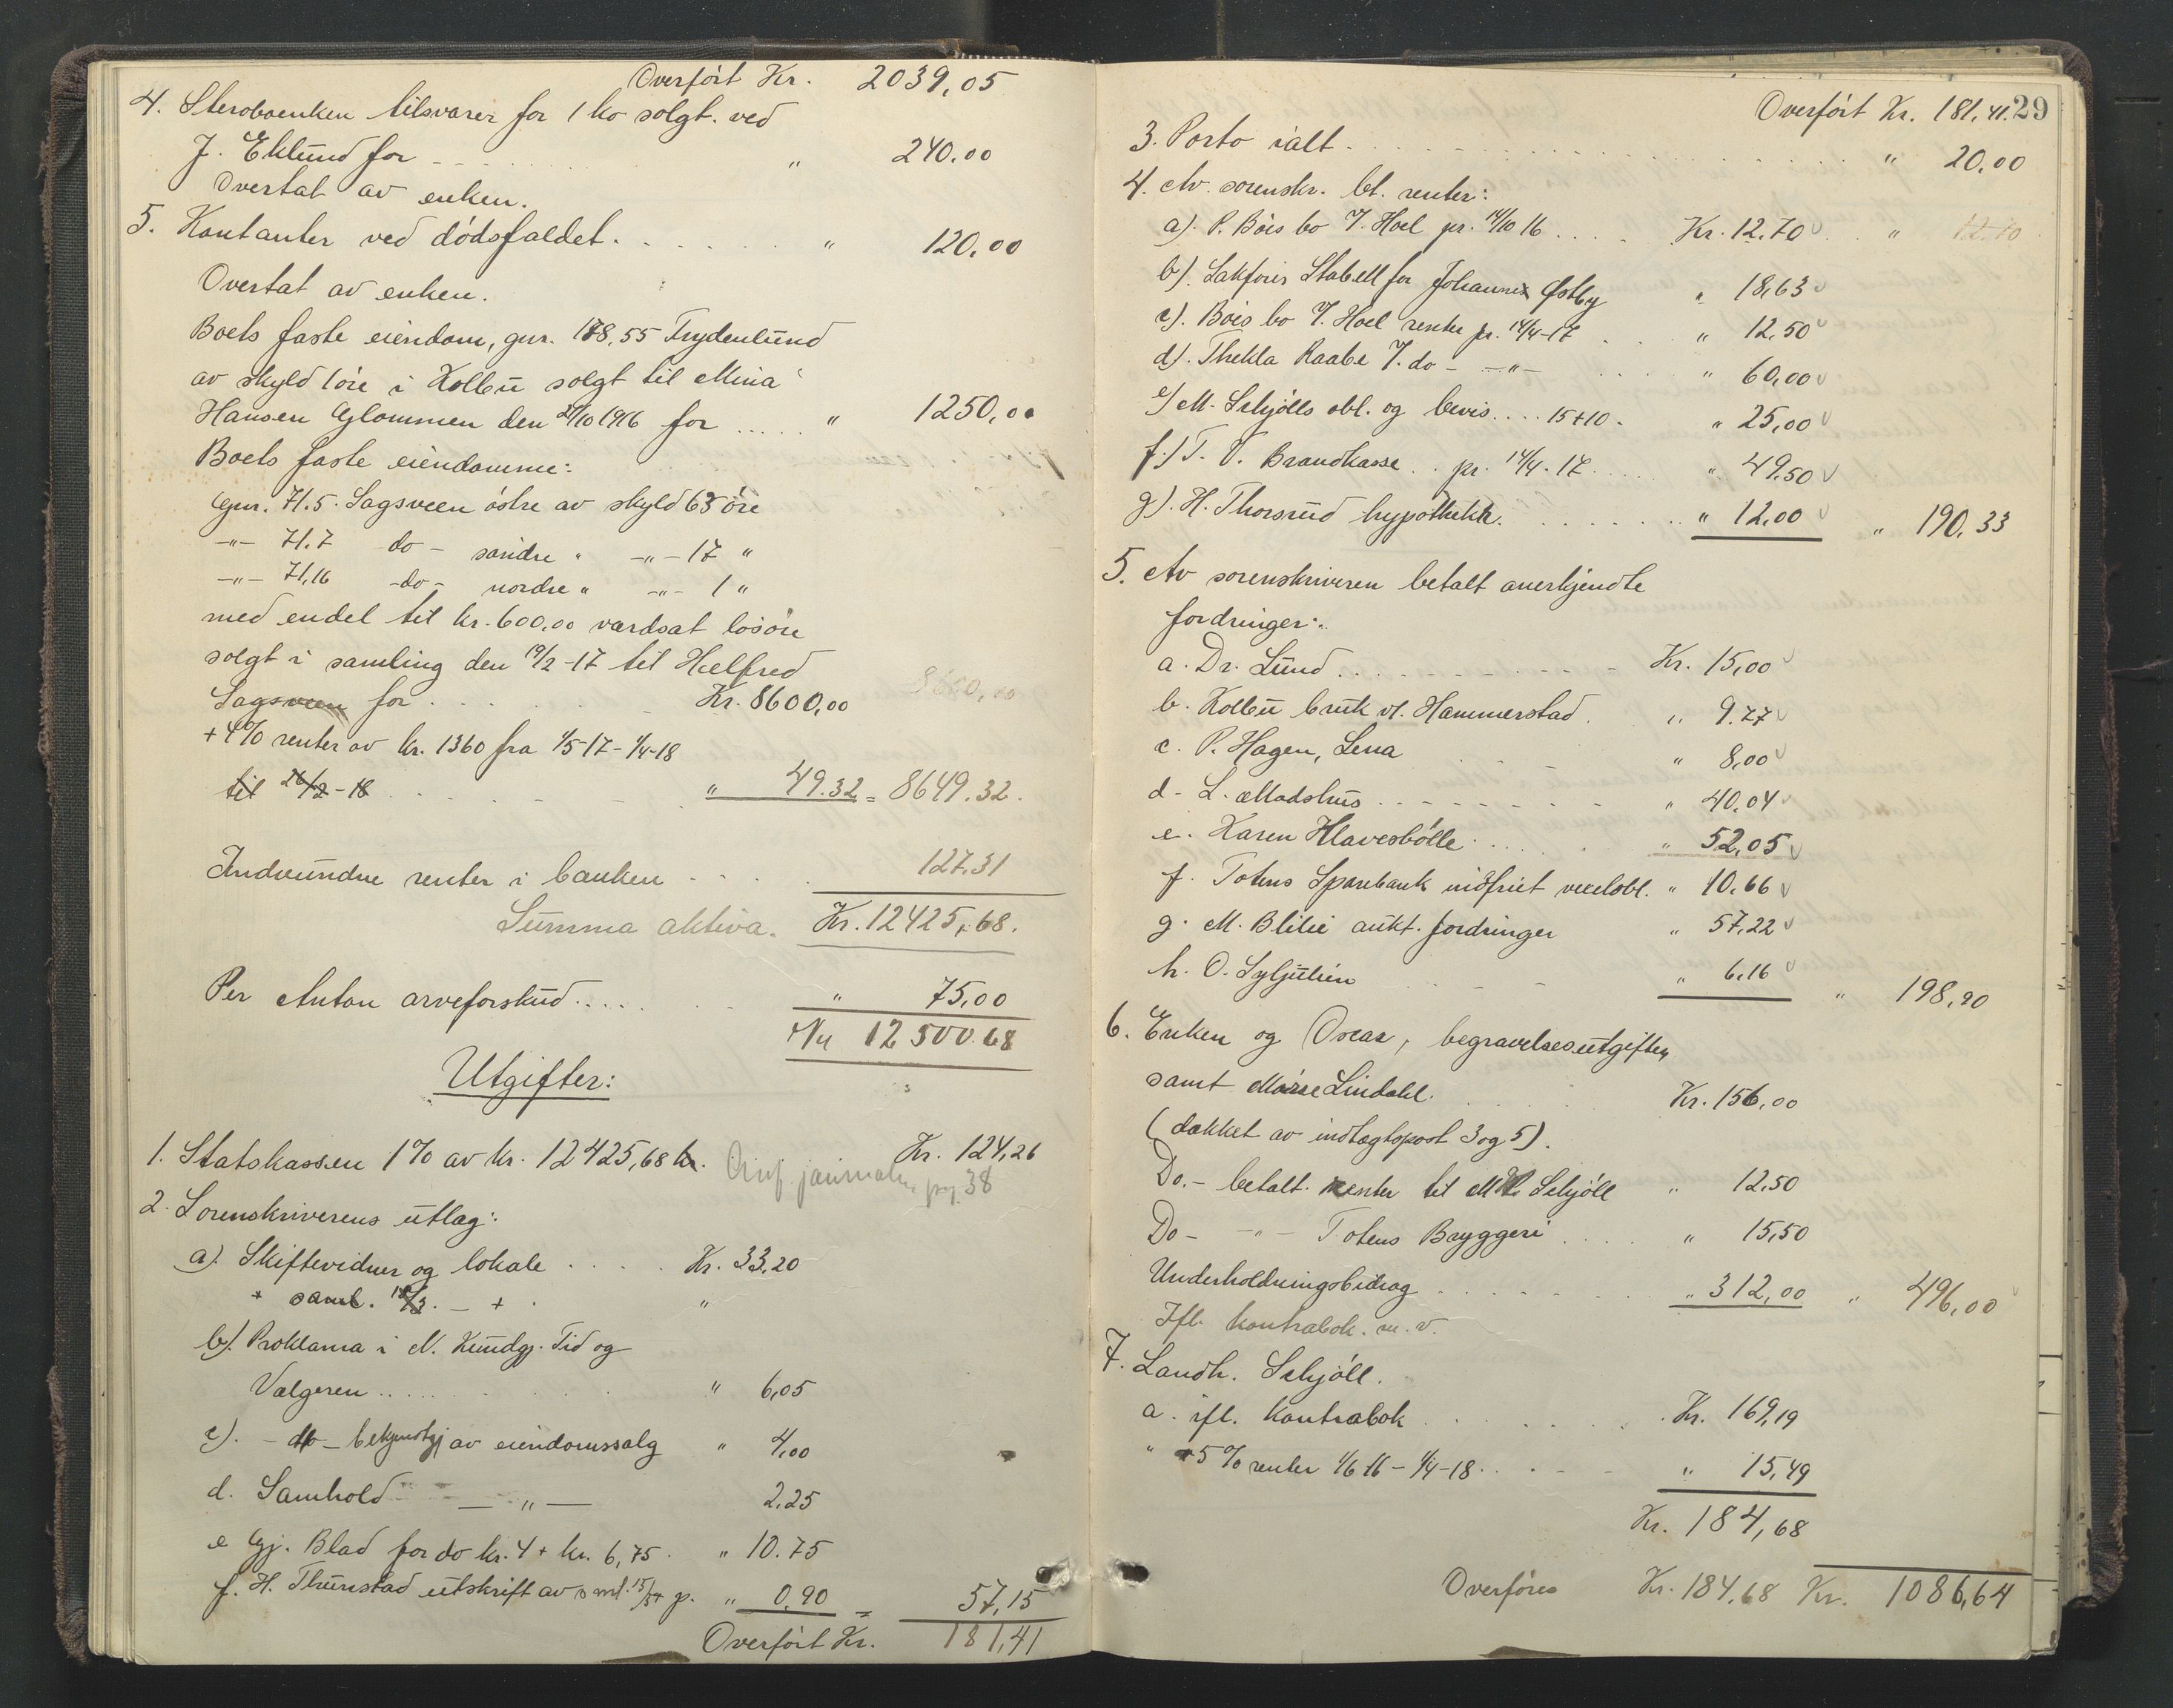 Overført Kr. 2039,05
4. Sterboenken tilsvarer for 1 ko solgt ved
J. Eklund for " 240.00
Overtat av enken.
5. Kontanter ved dødsfaldet. " 120,00
Overtat av enken.
Boets faste eiendom, gnr. 178,55 Frydenlund
av skyld 1 øre i Kolbu solgt til Mina
Hansen Glommen den 21/10 1916 for ..... " 1250,00
Boets faste eiendomme:
Gnr. 71.5. Sagsveen østre av skyld 63 øre
-"- 71.7 do - søndre " -"- 17 "
-"- 71,16 -do- nordre " -"- 1 "
med endel til kr. 600,00 værdsat løsøre
solgt i samling den 19/2-17 til Helfred
Sagsveen for Kr. 8600,00
+ 4% renter av kr. 1360 fra 1/5-17 - 1/4-18
til 26/2-18 " 49.32 = 8649.32.
Indvundne renter i banken 127.31
Summa aktiva. Kr. 12425,68.
Per Anton arveforskud.... " 75,00
12500.68
Utgifter:
1. Statskassen 1% av kr. 12425,68 kr. Kr. 124,26
pg. 38
2. Sorenskriverens utlæg:
a). Skiftevidner og lokale Kr. 33,20
+ saml. - + . "
b). Proklama i N. Kundgj. Tid og
Vælgeren ..... " 6,05
c). - do - bekjendtgj av eiendomssalg " 4,00
d. Samhold - " - 2.25
e Gj. Blad for do kr. 4 + kr. 6,75. " 10.75
f. H. Thunstad utskrift av " 0.90 = 57,15
Overført Kr. 181,41
29
Overført Kr. 181,41.
3. Porto ialt. " 20.00
4. Av sorenskr. bt. renter:
a). P. Bøis bo v. Hoel pr. 14/10 16 .... Kr. 12.70 " 12.70
b). Sakfører Stabell for Johannes Østby " 18,63
c). Bøis bo v. Hoel renter pr. 14/4-17 " 12.50
d). Thekla Raabe v. do - -"- " 60,00
e) M. Schjølls obl. og bevis.... 15+10. " 25,00
f.) T. V. Brandkasse .. pr. 14/4. 17 " 49,50
g). H. Thorsrud hypothekk. " 12.00 " 190.33
5. Av sorenskriveren betalt anerkjendte
fordringer:
a. Dr. Lund Kr. 15,00
b. Kolbu bruk v. Hammerstad. " 9.77
c. P. Hagen, Lena " 8,00
d. L. Madshus " 40.04
e. Karen Hlavesbølle " 52,05
f. Totens Sparebank indfriet vexelobl. " 10.66
g. M. Blilie aukt. fordringer " 57,22
h. O. Syljulien " 6.16 " 198,90
6. Enken og Oscar, begravelsesutgifter
samt Lindahl. Kr. 156,00
(dækket av indtægtspost 3 og 5).
Do. - betalt renter til M. Schjøll " 12.50
Do - -"- Totens Bryggeri " 15,50
Underholdningsbidrag " 312,00 " 496,00
Ifl. kontrabok. m. v.
7. Landh. Schjøll.
a. ifl. kontrabok Kr. 169,19
" + 5% renter 1/6 16 - 1/4-18 " 15,49
Kr. 184,68
Overføres Kr. 184,68 Kr. 1086,64